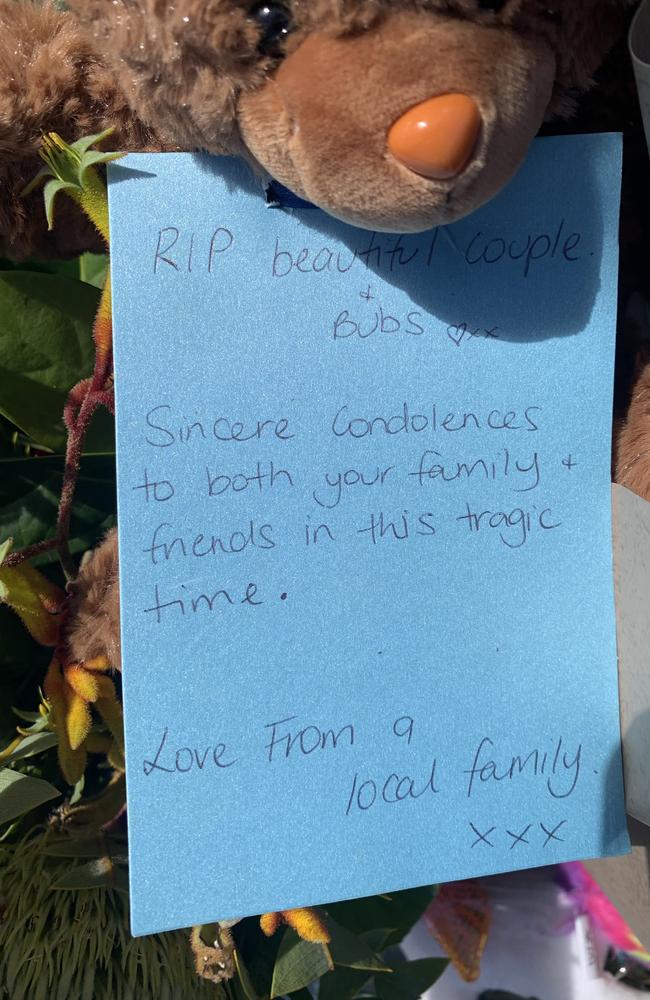 RIP beautiful couple.
+
Bubs ♡xx
Sincere Condolences
to both your family +
friends in this tragic
time.
Love From a
local family.
xxx